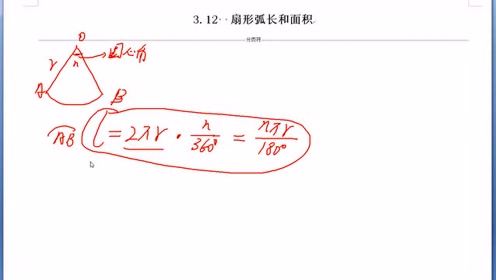 3.12 扇形弧长和面积
分页符
O
r n 圆心角
A
B
AB l = 2πr · n/360° = nπr/180°